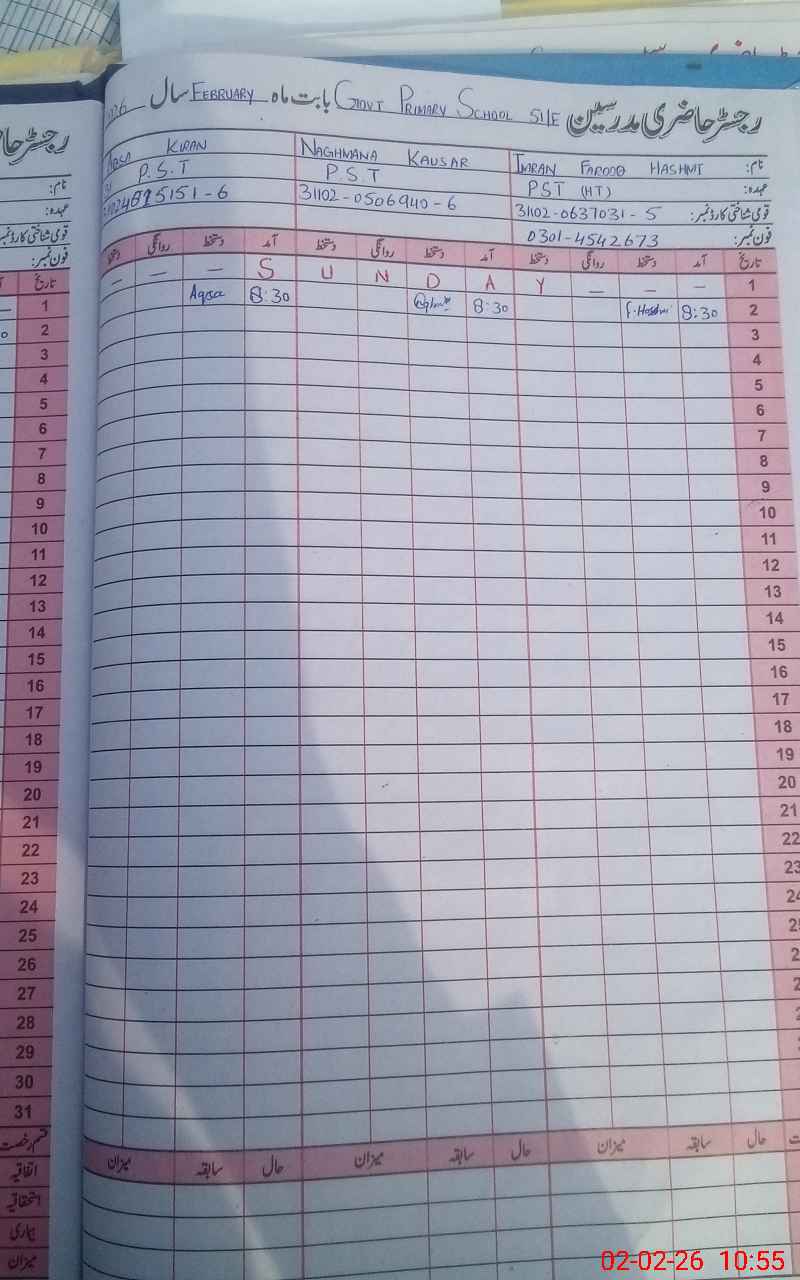 رجسٹر حاضری مدرسین GOVT PRIMARY SCHOOL 51/E بابت ماہ FEBRUARY سال
نام: IMRAN FAROOQ HASHMI NAGHMANA KAUSAR AQSA KIRAN
عہدہ: PST (HT) P.S.T P.S.T
قومی شناختی کارڈ نمبر: 31102-0637031-5 31102-0506940-6
فون نمبر: 0301-4542673
تاریخ آمد دستخط روانگی دستخط آمد دستخط روانگی دستخط آمد دستخط روانگی دستخط
1 — — — S U N D A Y — — —
2 8:30 F.Hashmi 8:30 8:30 Aqsa
3
4
5
6
7
8
9
10
11
12
13
14
15
16
17
18
19
20
21
22
23
حال سابقہ میزان حال سابقہ میزان حال سابقہ میزان
نام:
عہدہ:
فون نمبر:
تاریخ
1
2
3
4
5
6
7
8
9
10
11
12
13
14
15
16
17
18
19
20
21
22
23
24
25
26
27
28
29
30
31
قسم رخصت
اتفاقیہ
استحقاقیہ
بیماری
میزان
02-02-26 10:55